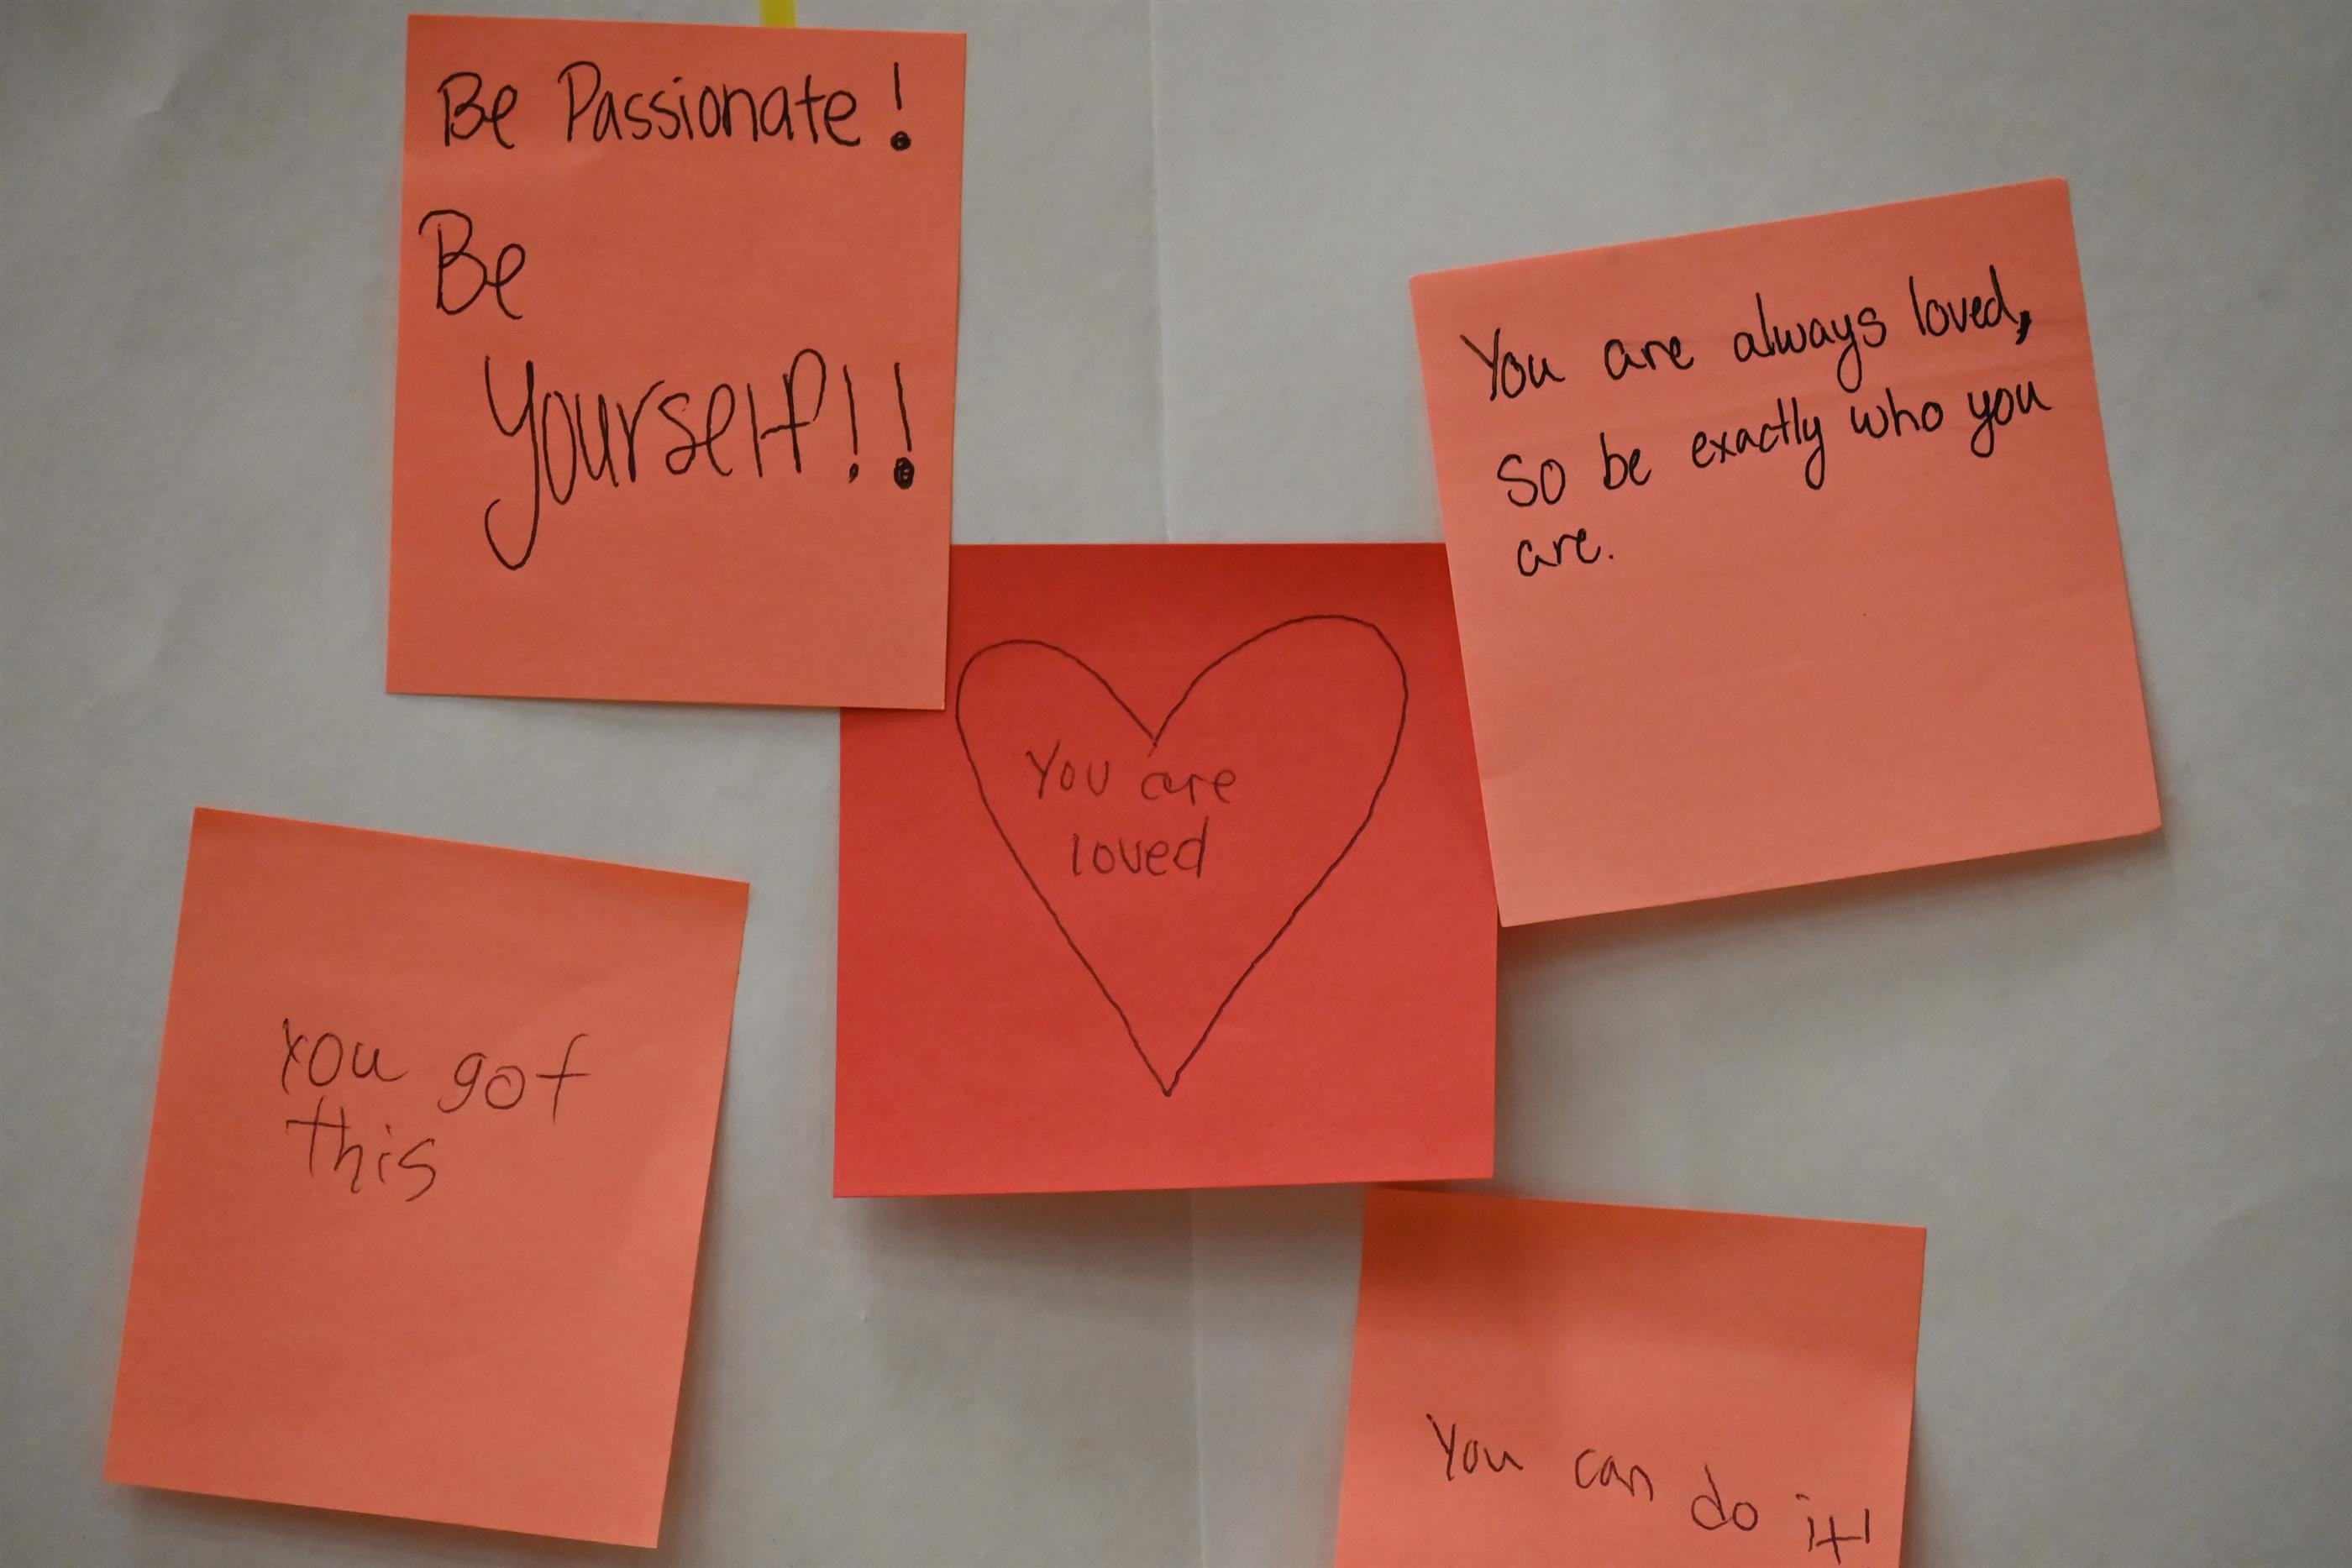 Be Passionate!
Be
Yourself!!
You are always loved,
so be exactly who you
are.
You are
loved
You got
this
You can do it!